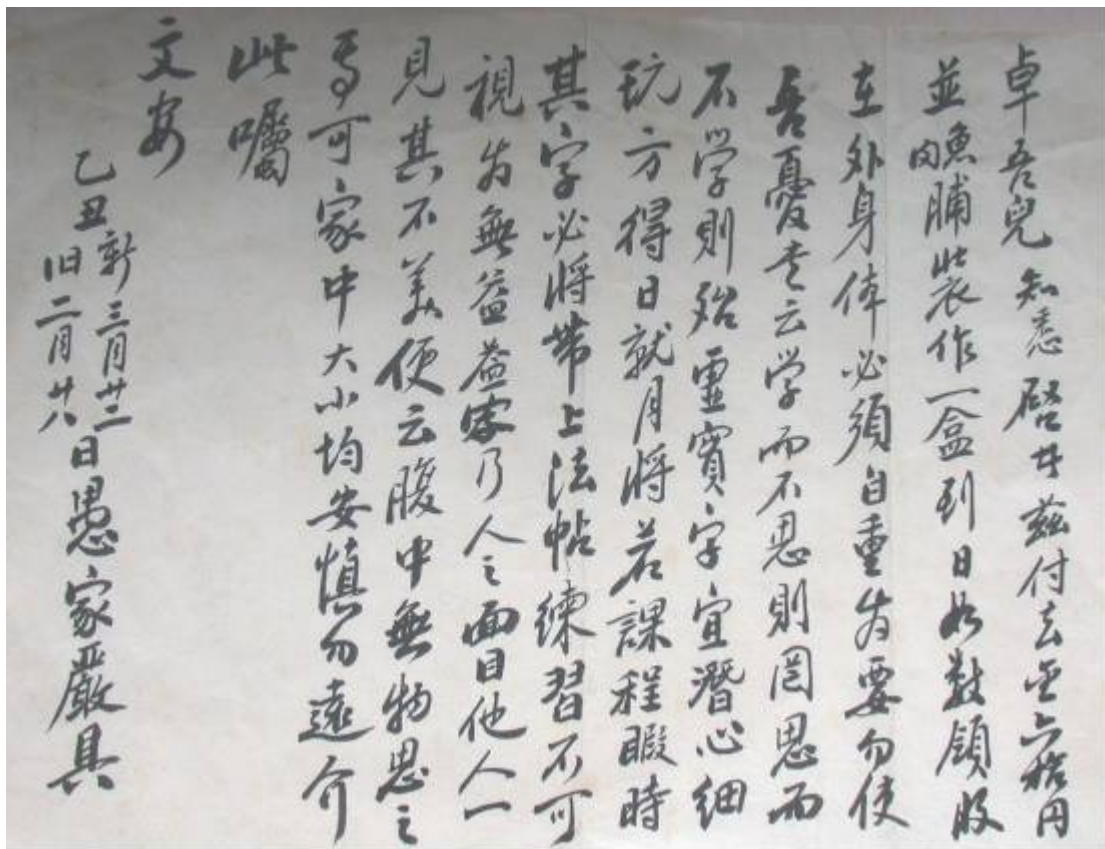 卓吾兒知悉啓者茲付去金六拾円
並魚肉脯裝作一盒到日如數領收
在外身体必須自重为要勿使
吾憂考云学而不思則罔思而
不学則殆靈實字宜潛心細
玩方得日就月將若課程暇時
其字必將帶上法帖練習不可
視为無益益字乃人之面目他人一
見其不美便云腹中無物思之
焉可家中大小均安慎勿遠介
此囑
文安
乙丑新三月廿二旧二月廿八日愚家嚴具